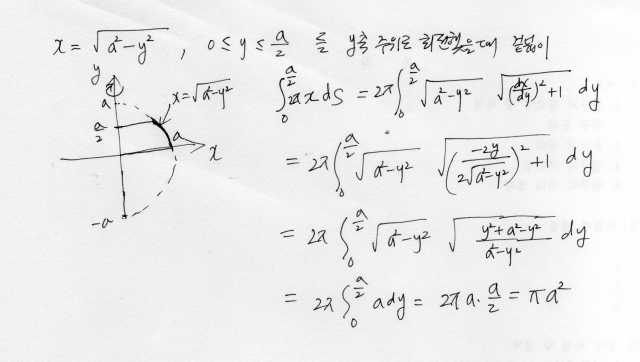 x = √(a²-y²) , 0 ≤ y ≤ a/2 를 y축 주위로 회전했을때 겉넓이
y
a
x=√(a²-y²)
a/2
a
x
-a
∫₀^(a/2) 2πx ds = 2π ∫₀^(a/2) √(a²-y²) √((dx/dy)²+1) dy
= 2π ∫₀^(a/2) √(a²-y²) √((-2y/(2√(a²-y²)))²+1) dy
= 2π ∫₀^(a/2) √(a²-y²) √((y²+a²-y²)/(a²-y²)) dy
= 2π ∫₀^(a/2) a dy = 2πa · a/2 = πa²